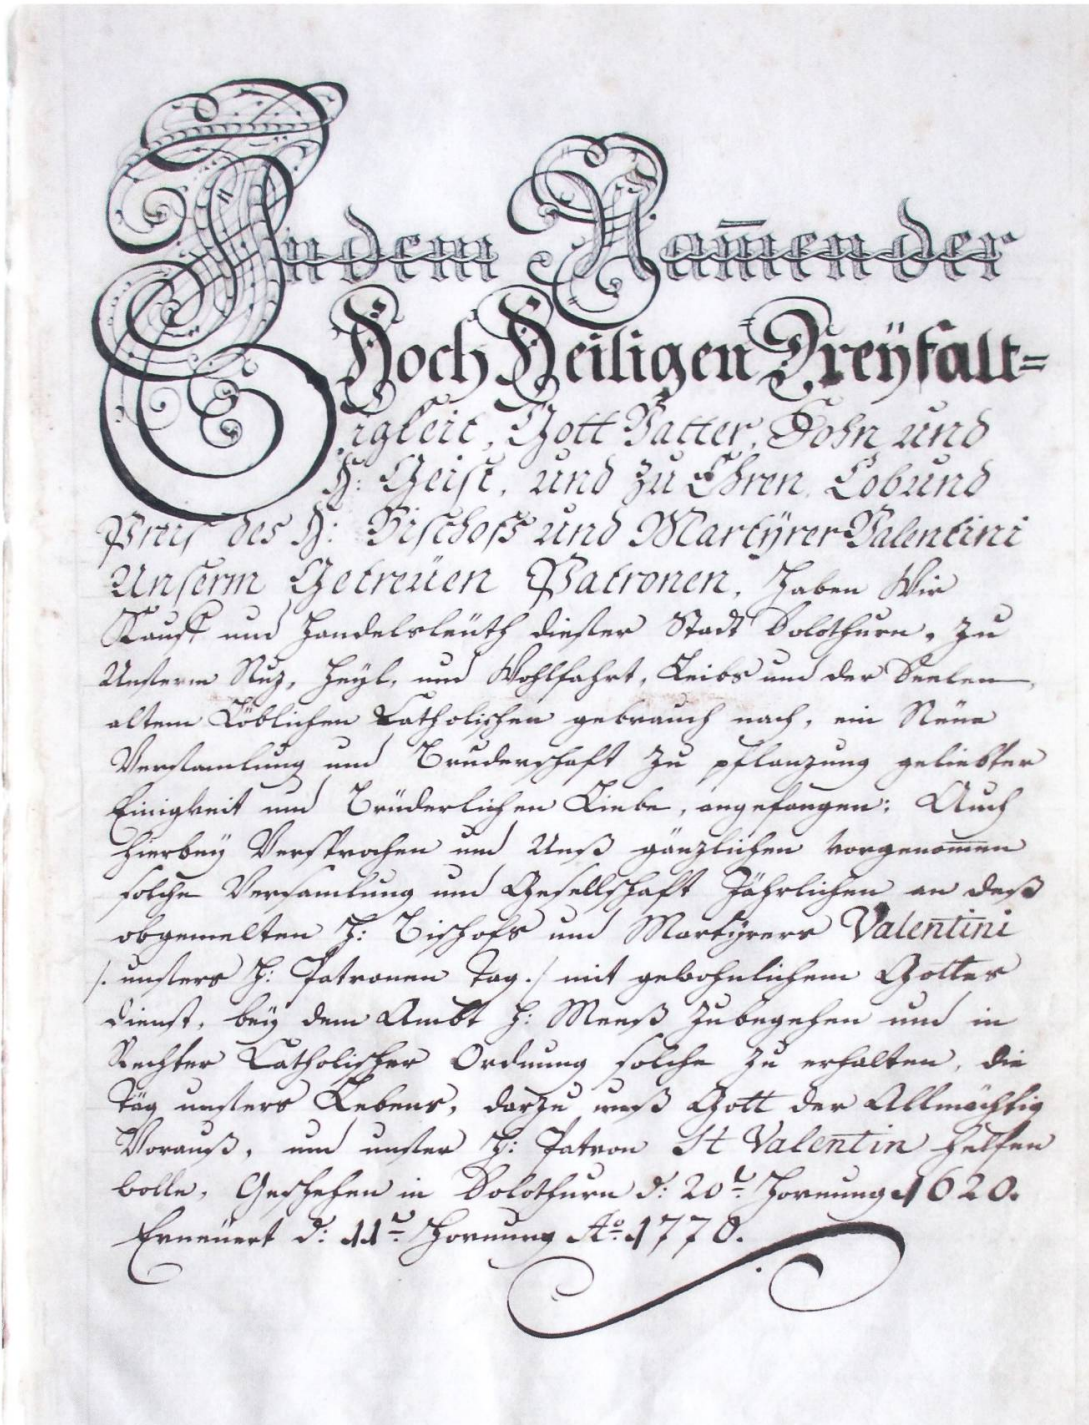 In dem Nam̄en der
Hoch Heiligen Dreÿfalt=
igkeit, Gott Vatter, Sohn und
H: Geist, und zu Ehren, Lob und
Preis des H: Bischoffs und Martÿrer Valentini
Unserm Getreüen Patronen, haben Wir
Kauff und Handelsleüth diesser Stadt Solothurn, zu
Unsserm Nuz, Heÿl, und Wohlfahrt, Leibs und der Seelen,
altem Löblichen Catholischen gebrauch nach, ein Neüe
Verssamlung und Bruderschafft zu pflanzung geliebter
Einigkeit und Brüderlichen Liebe, angefangen: Auch
hierbeÿ Versprochen und Unß gänzlichen vorgenom̄en
solche Versamlung und Gesellschafft Jährlichen an deß
obgemelten H: Bischofs und Martÿrers Valentini
/. unssers H: Patronen Tag ./ mit gewohnlichem Gottes
dienst, beÿ dem Ambt H: Meeß zu begehen und in
Rechter Catholischer Ordnung solche zu erhalten, die
Täg unssers Lebens, darzu unß Gott der Allmächtig
Vorauß, und unsser H: Patron St Valentin helffen
wolle, Geschehen in Solothurn d: 20t Hornung 1620.
Erneüert d: 11t Hornung Ao 1770.